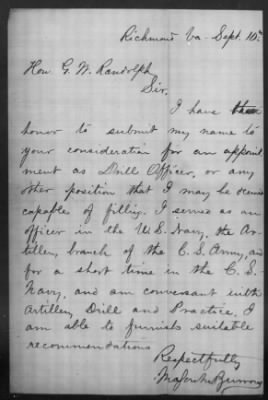 Richmond Va. Sept. 10th
Hon. G. W. Randolph
Sir.
I have the
honor to submit my name to
your consideration for an appoint
ment as Drill Officer, or any
other position that I may be deemed
capable of filling. I served as an
officer in the U.S. Navy, the Ar-
tillery branch of the C. S. Army, and
for a short time in the C. S.
Navy, and am conversant with
Artillery Drill and Practice. I
am able to furnish suitable
recommendations
Respectfully